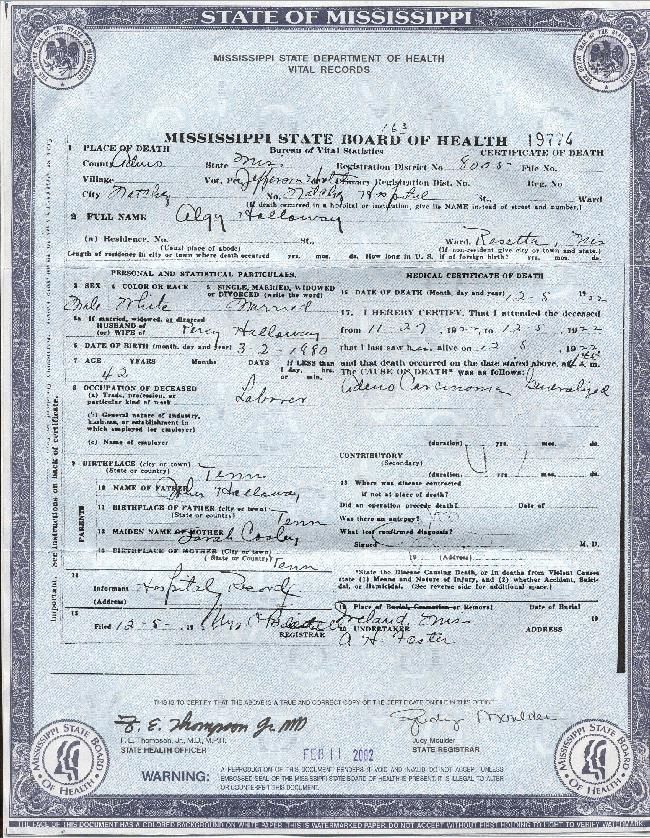 STATE OF MISSISSIPPI
MISSISSIPPI STATE DEPARTMENT OF HEALTH
VITAL RECORDS
163
MISSISSIPPI STATE BOARD OF HEALTH 19774
1 PLACE OF DEATH Bureau of Vital Statistics CERTIFICATE OF DEATH
County Adams State Mis. Registration District No. 8005 File No.
Village Vot. Pct. Jefferson Primary Registration Dist. No. Reg. No
City Natchez No. Natchez Hospital St. Ward
(If death occurred in a hospital or institution, give its NAME instead of street and number.)
2 FULL NAME Algy Hallaway
(a) Residence. No. St., Ward, Rosetta, Mis
(Usual place of abode) (If non-resident give city or town and state.)
Length of residence in city or town where death occured yrs. mos. ds. How long in U. S. if of foreign birth? yrs. mos. ds.
PERSONAL AND STATISTICAL PARTICULARS. MEDICAL CERTIFICATE OF DEATH
3 SEX 4 COLOR OR RACE 5 SINGLE, MARRIED, WIDOWED or DIVORCED (write the word)
Male White Married
16 DATE OF DEATH (Month, day and year) 12-5 1922
5a If married, widowed, or divorced
HUSBAND of
(or) WIFE of Percy Hallaway
17. I HEREBY CERTIFY, That I attended the deceased
from 11-27, 1922, to 12 5, 1922
6 DATE OF BIRTH (month, day and year) 3-2-1880
that I last saw him alive on 12 5, 1922
7 AGE YEARS Months DAYS If LESS than 1 day, hrs. or min.
42
and that death occurred on the date stated above, at m.
The CAUSE OF DEATH* was as follows:
Adeno Carcinoma Generalized
8 OCCUPATION OF DECEASED
(a) Trade, profession, or particular kind of work Laborer
(b) General nature of industry, business, or establishment in which employed (or employer)
(c) Name of employer
(duration) yrs. mos. ds.
CONTRIBUTORY
(Secondary)
(duration) yrs. mos. ds.
9 BIRTHPLACE (city or town)
(State or country) Tenn
10 NAME OF FATHER John Hallaway
11 BIRTHPLACE OF FATHER (city or town)
(State or country) Tenn
12 MAIDEN NAME OF MOTHER Sarah Cosley
13 BIRTHPLACE OF MOTHER (City or town)
(State or Country) Tenn
PARENTS
18 Where was disease contracted
if not at place of death?
Did an operation precede death? Date of
Was there an autopsy?
What test confirmed diagnosis?
Signed M. D.
19 (Address)
*State the Disease Causing Death, or in deaths from Violent Causes
state (1) Means and Nature of Injury, and (2) whether Accident, Suicidal, or Homicidal. (See reverse side for additional space.)
14
Informant Hospital Record
(Address)
15
Filed 12-5-, 19
REGISTRAR
19 Place of Burial, Cremation or Removal Date of Burial
Ireland, Mis 19
20 UNDERTAKER ADDRESS
A. H. Foster
Important. See instructions on back of certificate.
THIS IS TO CERTIFY THAT THE ABOVE IS A TRUE AND CORRECT COPY OF THE CERTIFICATE ON FILE IN THIS OFFICE
F. E. Thompson Jr. MD
F. E. Thompson, Jr., M.D., M.P.H.
STATE HEALTH OFFICER
FEB 11 2002
Judy Moulder
Judy Moulder
STATE REGISTRAR
WARNING: A REPRODUCTION OF THIS DOCUMENT RENDERS IT VOID AND INVALID. DO NOT ACCEPT UNLESS
EMBOSSED SEAL OF THE MISSISSIPPI STATE BOARD OF HEALTH IS PRESENT. IT IS ILLEGAL TO ALTER
OR COUNTERFEIT THIS DOCUMENT.
MISSISSIPPI STATE BOARD OF HEALTH
MISSISSIPPI STATE BOARD OF HEALTH
THE FACE OF THIS DOCUMENT HAS A COLORED BACKGROUND ON WHITE PAPER. THIS IS WATERMARKED PAPER DO NOT ACCEPT WITHOUT FIRST HOLDING TO LIGHT TO VERIFY WATERMARK.